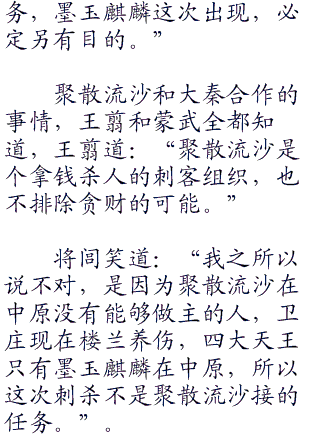 务，墨玉麒麟这次出现，必
定另有目的。”
聚散流沙和大秦合作的
事情，王翦和蒙武全都知
道，王翦道：“聚散流沙是
个拿钱杀人的刺客组织，也
不排除贪财的可能。”
将闾笑道：“我之所以
说不对，是因为聚散流沙在
中原没有能够做主的人，卫
庄现在楼兰养伤，四大天王
只有墨玉麒麟在中原，所以
这次刺杀不是聚散流沙接的
任务。”。